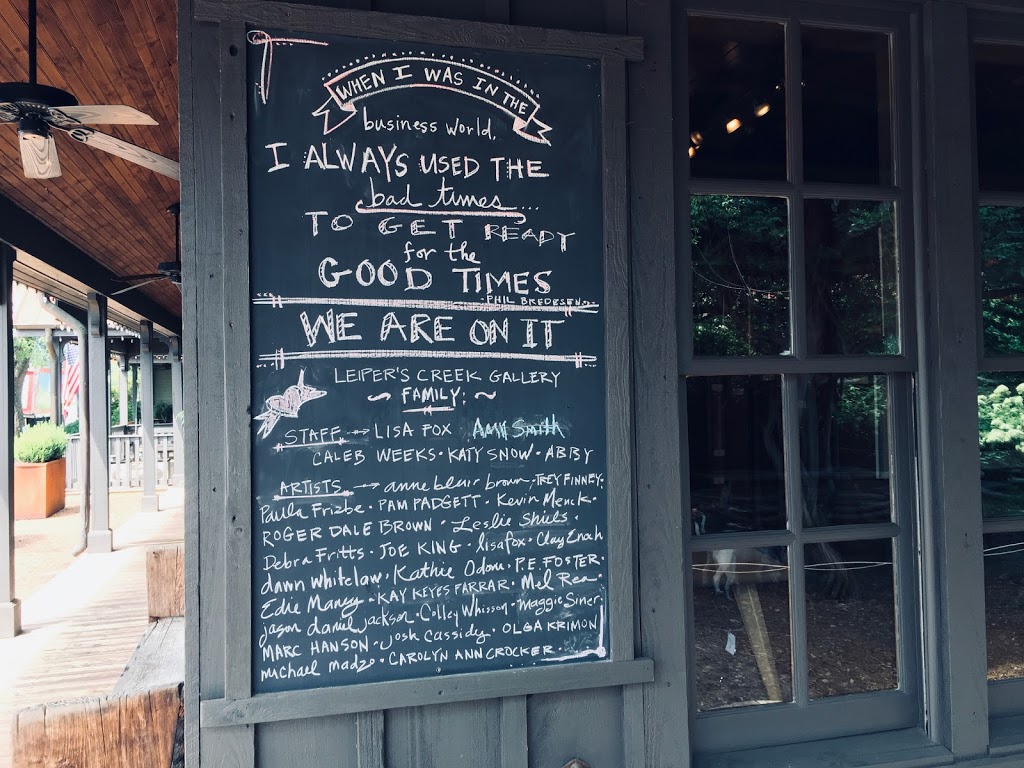 WHEN I WAS IN THE
business world,
I ALWAYS USED THE
bad times...
TO GET READY
for the
GOOD TIMES
· PHIL BREDESEN ·
WE ARE ON IT
LEIPER'S CREEK GALLERY
~ FAMILY: ~
STAFF → LISA FOX Amy Smith
CALEB WEEKS · KATY SNOW · ABBY
ARTISTS → anne blair brown · TREY FINNEY ·
Paula Frizbe · PAM PADGETT · Kevin Menck ·
ROGER DALE BROWN · Leslie Shiels ·
Debra Fritts · JOE KING · lisa fox · Clay Enoch
dawn whitelaw · Kathie Odom · P.E. FOSTER ·
Edie Maney · KAY KEYES FARRAR · Mel Rea ·
jason daniel jackson · Colley Whisson · Maggie Siner ·
MARC HANSON · josh cassidy · OLGA KRIMON
michael madzo · CAROLYN ANN CROCKER ·